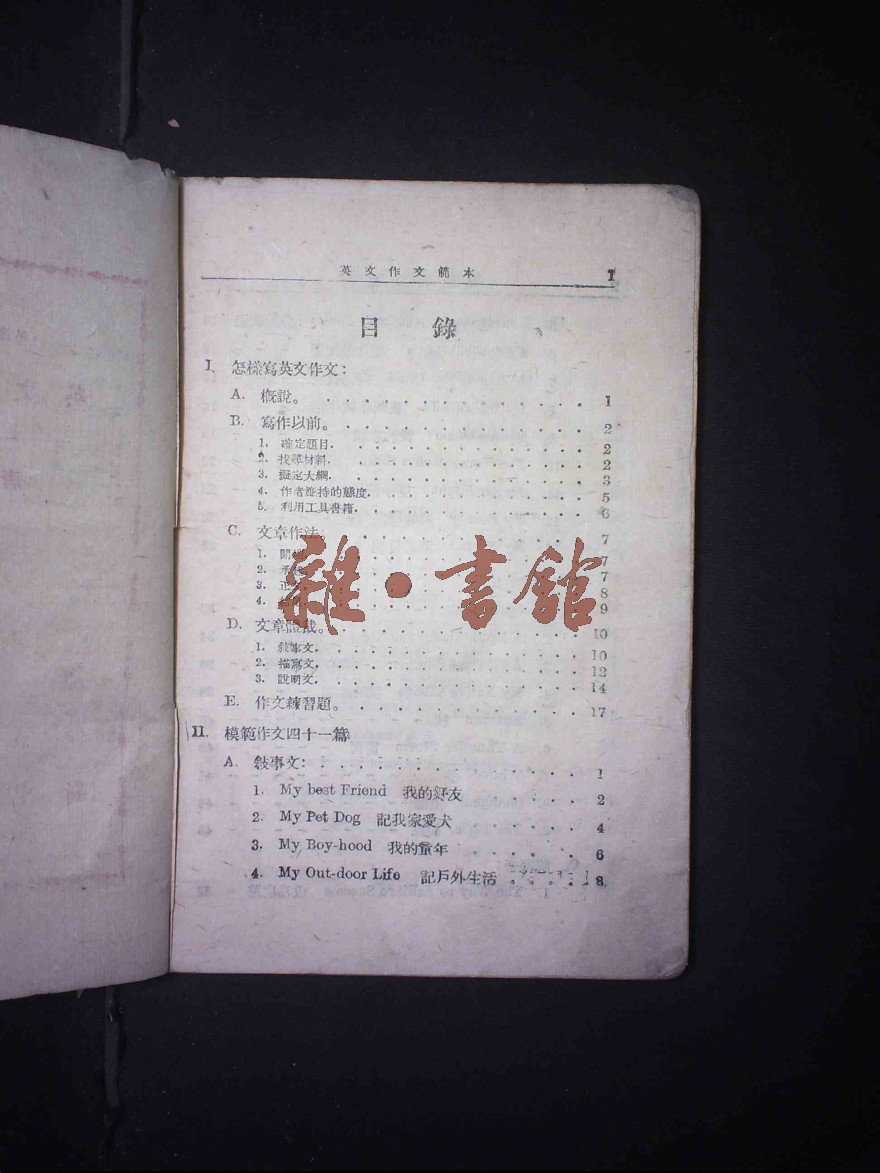 英文作文範本 1
目錄
I. 怎樣寫英文作文：
A. 概說。 1
B. 寫作以前。 2
1. 確定題目. 2
2. 找尋材料. 2
3. 擬定大綱. 3
4. 作者應持的態度. 5
5. 利用工具書籍. 6
C. 文章作法 7
1. 開 7
2. 7
3. 正 8
4. 9
雜·書館
D. 文章體裁。 10
1. 敍事文. 10
2. 描寫文. 12
3. 說明文. 14
E. 作文練習題。 17
II. 模範作文四十一篇
A. 敍事文： 1
1. My best Friend 我的好友 2
2. My Pet Dog 記我家愛犬 4
3. My Boy-hood 我的童年 6
4. My Out-door Life 記戶外生活 8